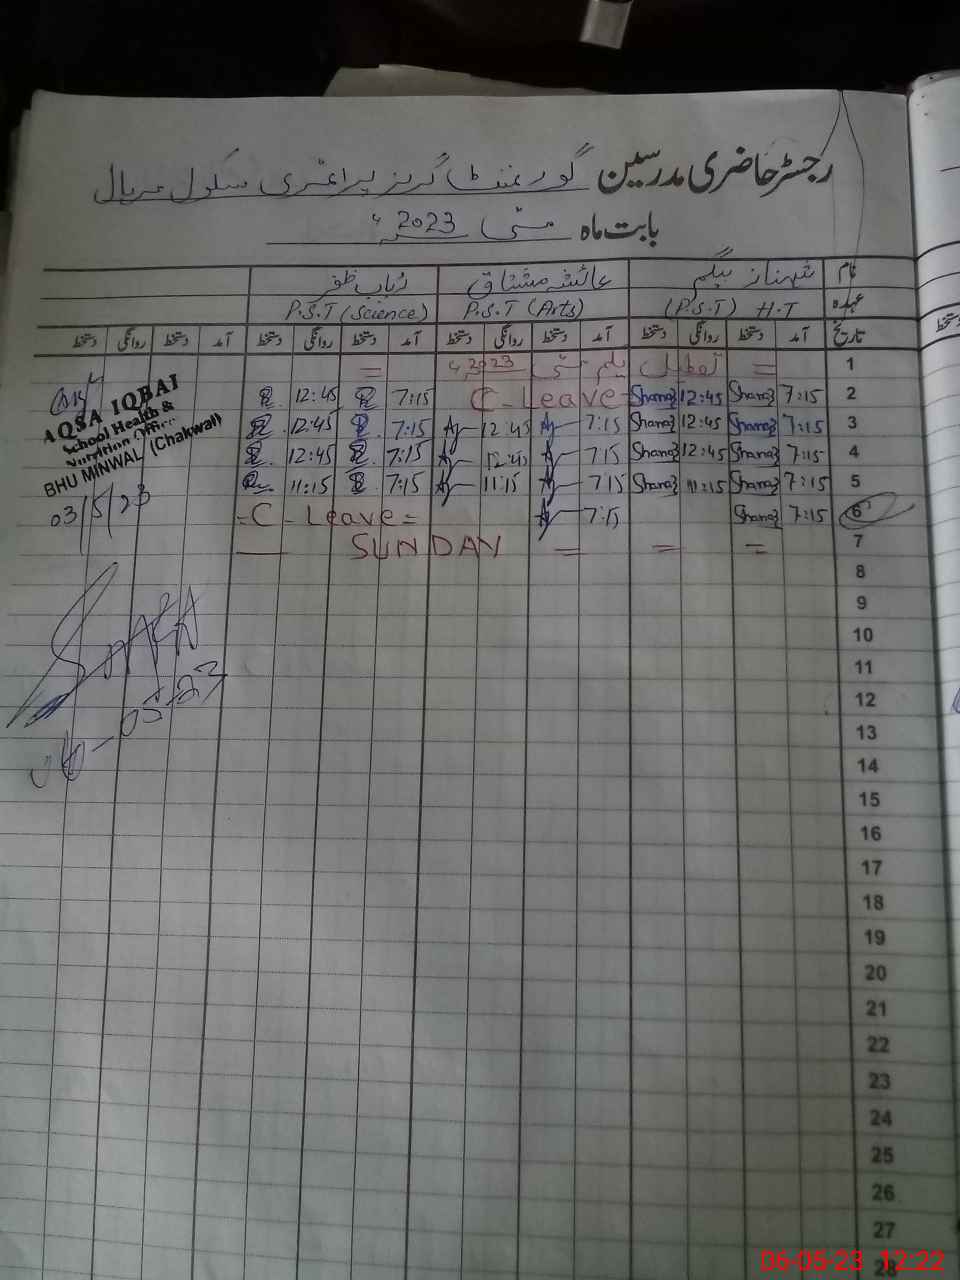 رجسٹر حاضری مدرسین گورنمنٹ گرلز پرائمری سکول مریال
بابت ماہ مئی 2023ء
نام شہناز بیگم عائشہ مشتاق رباب ظفر
عہدہ (P.S.T) H.T P.S.T (Arts) P.S.T (Science)
تاریخ آمد دستخط روانگی دستخط آمد دستخط روانگی دستخط آمد دستخط روانگی دستخط آمد دستخط روانگی دستخط
دستخط
1 = تعطیل یکم مئی 2023ء =
2 7:15 Shanaz 12:45 Shanaz C-Leave 7:15 12:45
3 7:15 Shanaz 12:45 Shanaz 7:15 Aj 12:45 Aj 7:15 12:45
4 7:15 Shanaz 12:45 Shanaz 7:15 Aj 12:45 Aj 7:15 12:45
5 7:15 Shanaz 11:15 Shanaz 7:15 Aj 11:15 Aj 7:15 11:15
6 7:15 Shanaz 7:15 Aj =C-Leave=
7 SUNDAY = = =
8
9
10
11
12
13
14
15
16
17
18
19
20
21
22
23
24
25
26
27
28
AQSA IQBAL
School Health &
Nutrition Officer
BHU MINWAL (Chakwal)
03/5/23
06-05-23
06-05-23 12:22